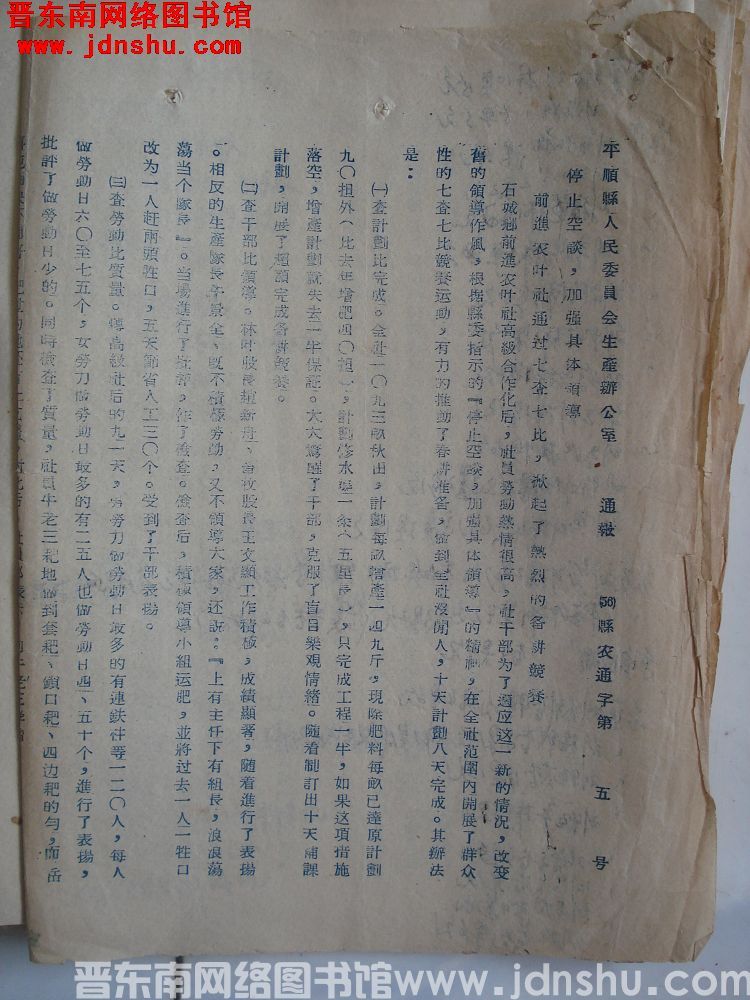 晋东南网络图书馆
www.jdnshu.com
平順縣人民委員会生產辦公室 通報 (56)縣农通字第 五 号
停止空談，加强具体領導
前進农叶社通过七查七比，掀起了熱烈的备耕競賽
石城鄉前進农叶社高級合作化后，社員勞动熱情很高，社干部为了適应这一新的情况，改变
舊的領導作風，根据縣委指示的『停止空談，加强具体領導』的精神，在全社范圍內開展了群众
性的七查七比競賽运动，有力的推动了春耕准备，做到全社沒閒人，十天計劃八天完成。其辦法
是：
㈠查計劃比完成。全社一〇九三畝秋田，計劃每畝增產一四九斤，現除肥料每畝已達原計劃
九〇担外（比去年增肥四〇担），計劃修水渠一条（五里長），只完成工程一半，如果这項措施
落空，增產計劃就失去一半保証。大大驚醒了干部，克服了盲目樂观情緒。隨着制訂出十天補課
計劃，開展了超額完成备耕競賽。
㈡查干部比領導。林叶股長趙新丹、畜牧股長王文顯工作積極，成績顯著，隨着進行了表揚
。相反的生產隊長 景全、既不積極勞动，又不領導大家，还説：『上有主任下有組長，浪浪蕩
蕩当个隊長』。当場進行了批評，作了檢查。檢查后，積極領導小組运肥，並將过去一人一牲口
改为一人赶兩頭牲口，五天節省人工三〇个。受到了干部表揚。
㈢查勞动比質量。轉高級社后的九一天，男勞力做勞动日最多的有連鉄 等一二〇人，每人
做勞動日六〇至七五个，女勞力做勞動日最多的有二五人也做勞動日四、五十个，進行了表揚，
批評了做勞動日少的。同時檢查了質量，社員牛老三耙地做到套耙、鎖口耙、四边耙的勻，而岳
晋东南网络图书馆www.jdnshu.com